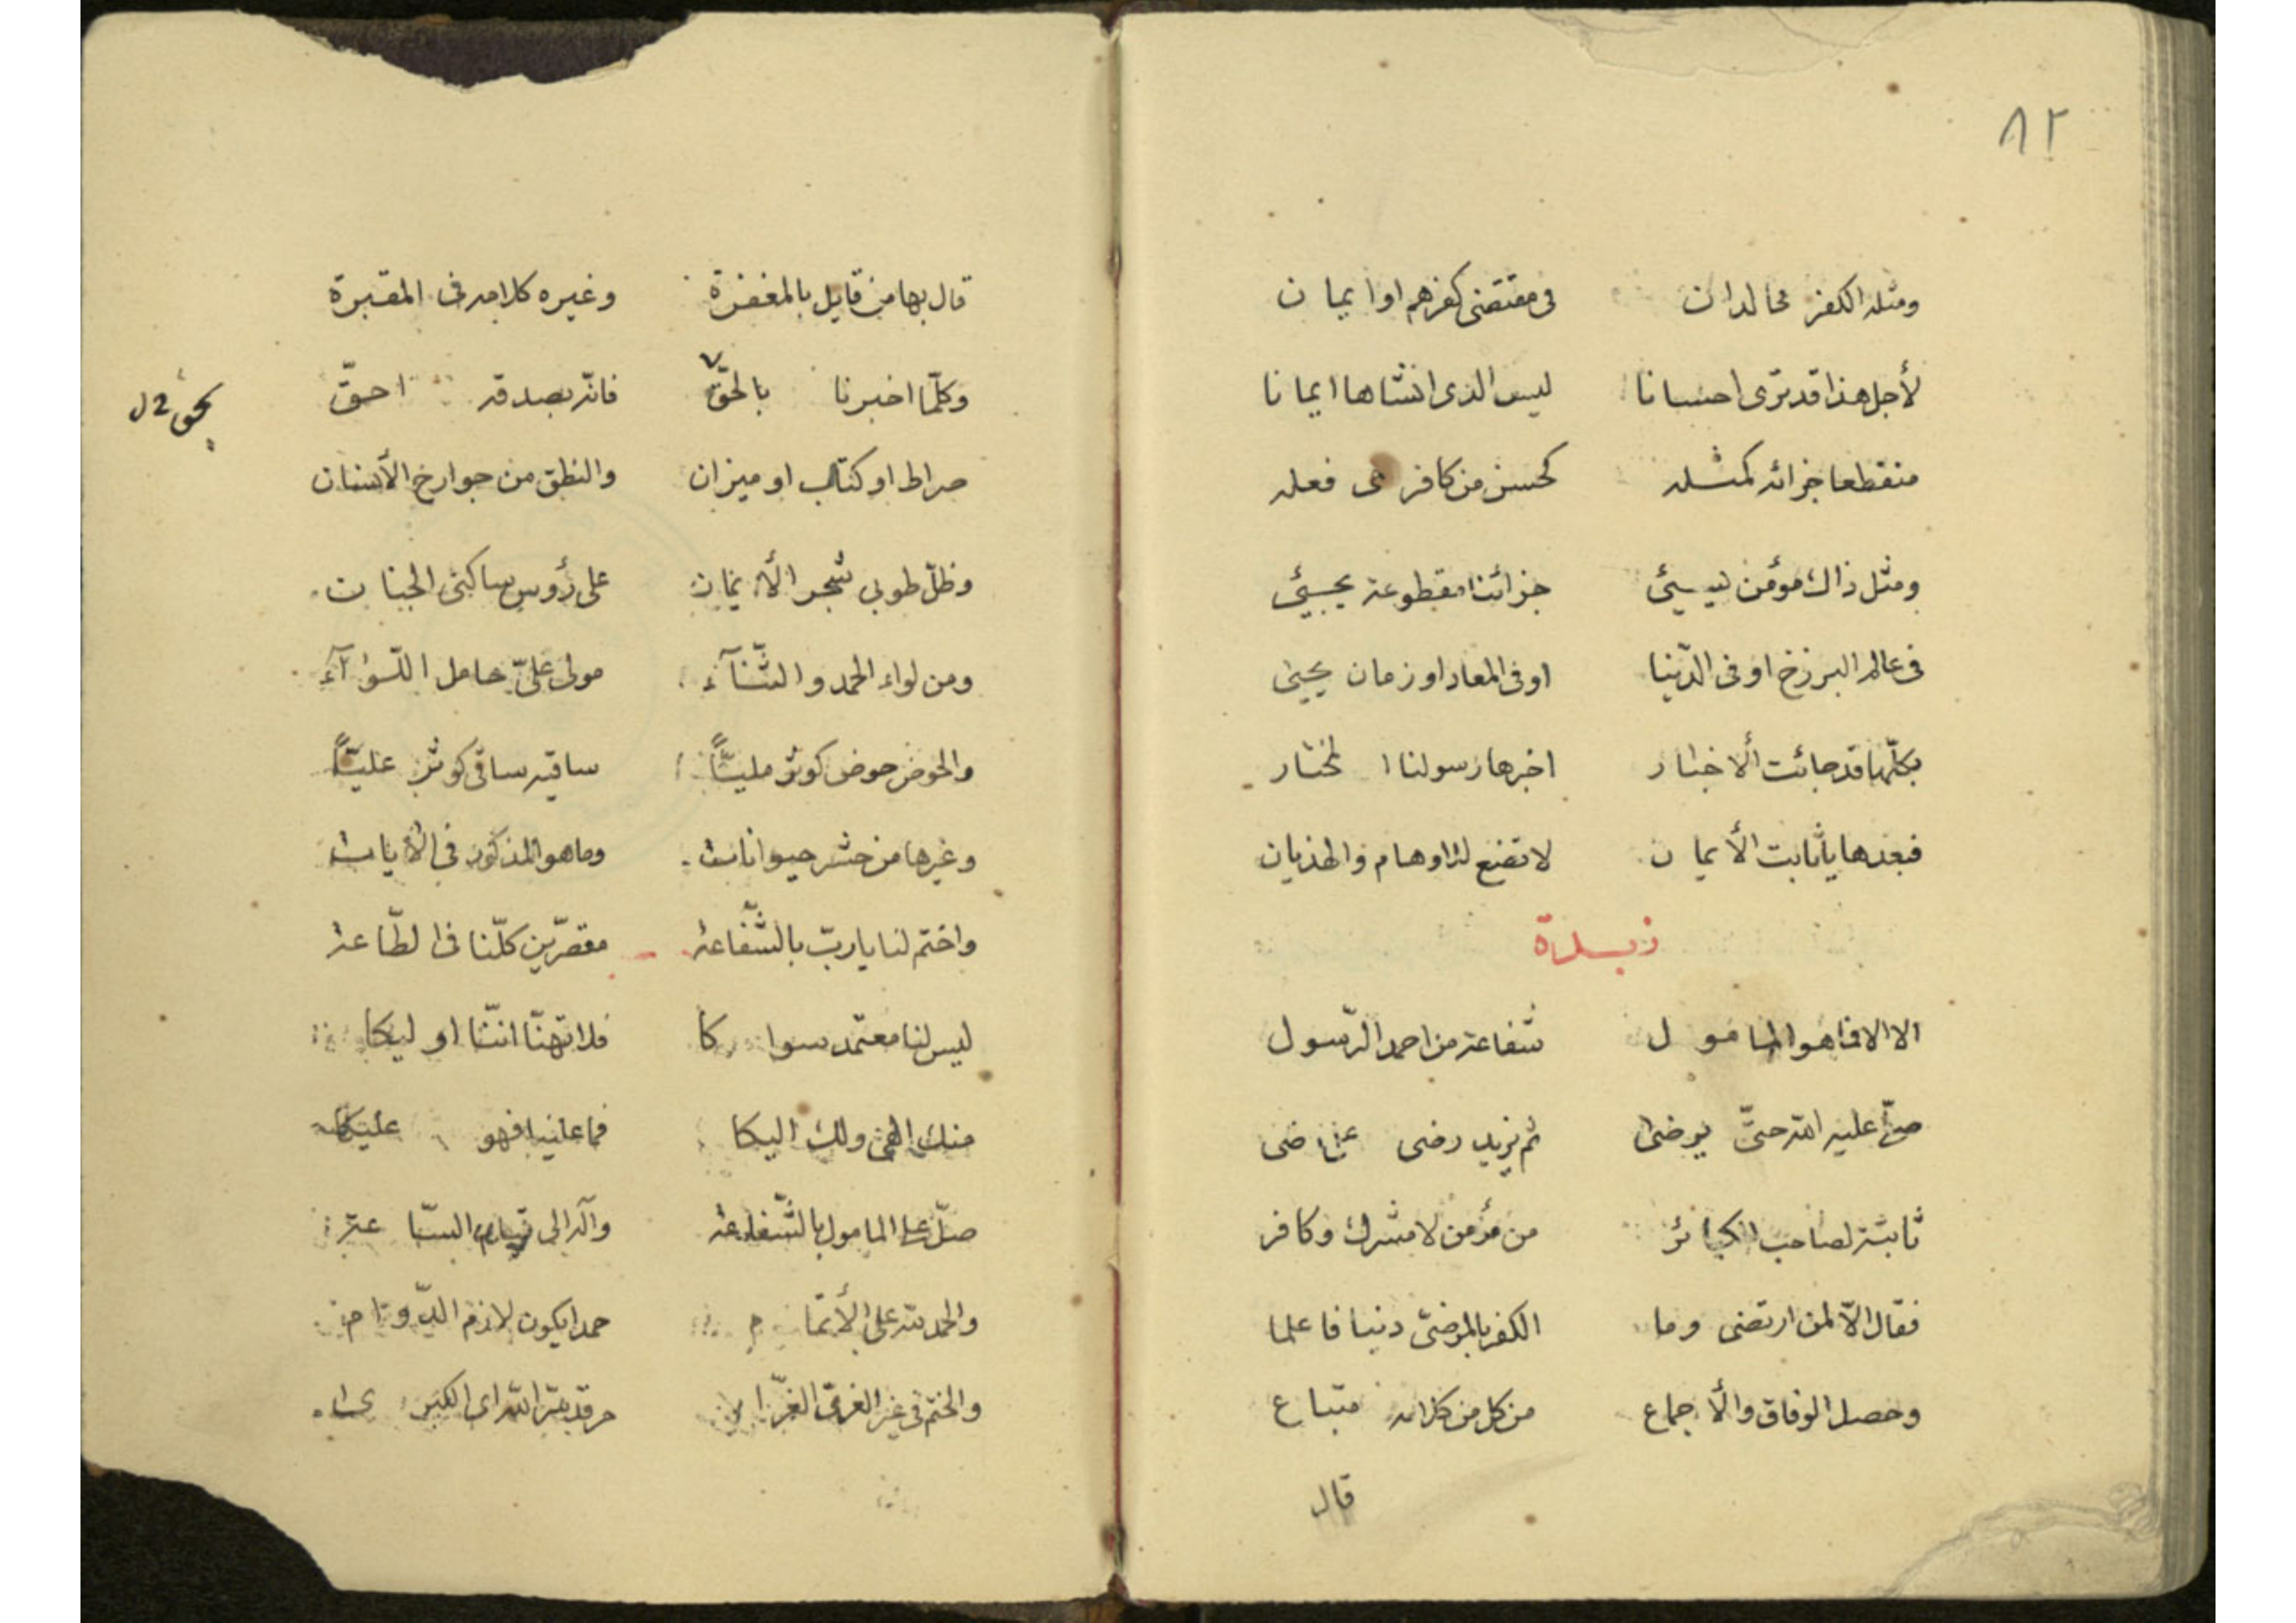 ٨٢
ومثله الكفر مخالدان في مقتضى كفرهم او ايمان
لأجل هذا قد ترى احسانا ليس الذى انشاها ايمانا
منقطعا جزائه كمثله كحسن من كافر فعله
ومثل ذاك مؤمن يسيئ جزائنا مقطوعة يجيئ
في عالم البرزخ او في الدنيا او في المعاد او زمان يحيى
بكلها قد جائت الأخبار اخبرها رسولنا المختار
فبعدها يا ثابت الأيمان لا تضع للاوهام والهذيان
زبدة
الا الا فما هو المامول شفاعة من احمد الرّسول
صلّى عليه الله حتّى يرضى ثم يزيد رضى
ثابتة لصاحب الكبائر من مؤمن لا مشرك وكافر
فقال الّا لمن ارتضى وما الكفر بالمرضىّ دنيا فاعلما
وحصل الوفاق والأجماع من كل من كلامه متباع
قال
قال بها من قايل بالمغفرة وغيره كلامه في المقبرة
وكلّما اخبرنا بالحقّ فانّه بصدقه احقّ
بحق
صراط او كتاب او ميزان والنطق من جوارح الأنسان
وظلّ طوبى شجر الأيمان على رؤس ساكنى الجنان
ومن لواء الحمد والثّنآء مولى علىّ حامل اللّوآء
والحوض حوض كوثر مليّاً ساقيه ساقى كوثر عليّاً
وغيرها من حشر حيوانات وما هو المذكور في الأيات
واختم لنا يا ربّ بالشّفاعة مقصّرين كلّنا في الطّاعة
ليس لنا معتمد سواكا فلا تهنّا انّنا اوليكا
منك الهى ولك اليكا فما علينا فهو عليكا
صلّ على المامول بالشّفاعة وآله الى قيام السّاعة
والحمد لله على الأتمام حمدا يكون لازم الدّوام
والختم في الغرىّ الغرّا